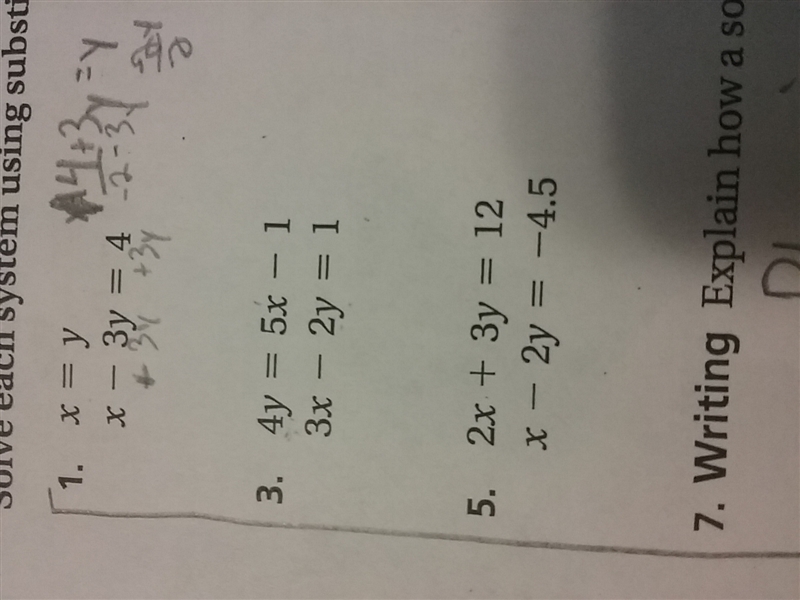 Solve each system using substi
1. x = y
x − 3y = 4
+ 3y +3y
4+3y = y
-2-3y
3. 4y = 5x − 1
3x − 2y = 1
5. 2x + 3y = 12
x − 2y = −4.5
7. Writing Explain how a so